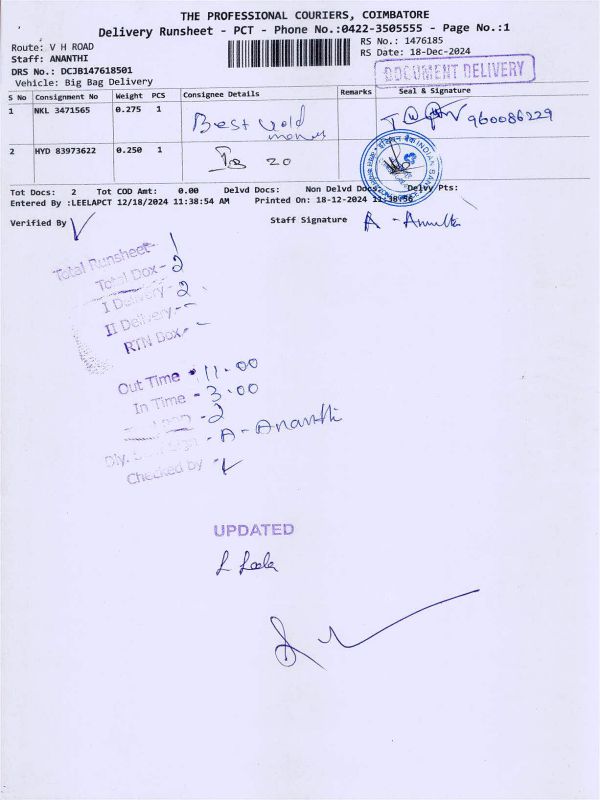 THE PROFESSIONAL COURIERS, COIMBATORE
Delivery Runsheet - PCT - Phone No.:0422-3505555 - Page No.:1
Route: V H ROAD
RS No.: 1476185
Staff: ANANTHI
RS Date: 18-Dec-2024
DRS No.: DCJB147618501
DOCUMENT DELIVERY
Vehicle: Big Bag Delivery
S No Consignment No Weight PCS Consignee Details Remarks Seal & Signature
1 NKL 3471565 0.275 1 Best Gold 960086229
money
2 HYD 83973622 0.250 1 20
INDIAN BANK
Tot Docs: 2 Tot COD Amt: 0.00 Delvd Docs: Non Delvd Docs: Delvy Pts:
Entered By :LEELAPCT 12/18/2024 11:38:54 AM Printed On: 18-12-2024 11:38:56
Verified By Staff Signature A - Ananthi
Total Runsheet- 1
Total Dox- 2
I Delivery- 2
II Delivery-
RTN Dox-
Out Time - 11.00
In Time - 3.00
- 2
Dly. - A - Ananthi
Checked by -
UPDATED
L Leela